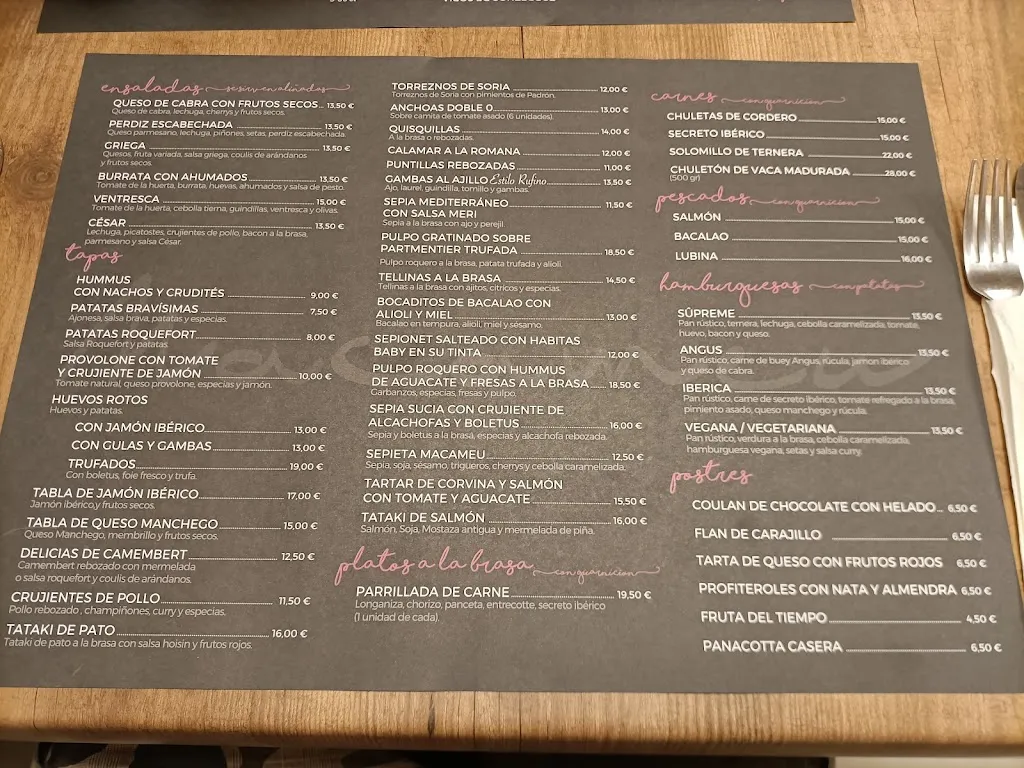 ensaladas se sirven aliñadas
QUESO DE CABRA CON FRUTOS SECOS 13,50 €
Queso de cabra, lechuga, cherrys y frutos secos.
PERDIZ ESCABECHADA 13,50 €
Queso parmesano, lechuga, piñones, setas, perdiz escabechada.
GRIEGA 13,50 €
Quesos, fruta variada, salsa griega, coulis de arándanos
y frutos secos.
BURRATA CON AHUMADOS 13,50 €
Tomate de la huerta, burrata, huevas, ahumados y salsa de pesto.
VENTRESCA 15,00 €
Tomate de la huerta, cebolla tierna, guindillas, ventresca y olivas.
CÉSAR 13,50 €
Lechuga, picatostes, crujientes de pollo, bacon a la brasa,
parmesano y salsa César.
tapas
HUMMUS
CON NACHOS Y CRUDITÉS 9,00 €
PATATAS BRAVÍSIMAS 7,50 €
Ajonesa, salsa brava, patatas y especias.
PATATAS ROQUEFORT 8,00 €
Salsa Roquefort y patatas.
PROVOLONE CON TOMATE
Y CRUJIENTE DE JAMÓN 10,00 €
Tomate natural, queso provolone, especias y jamón.
HUEVOS ROTOS
Huevos y patatas.
CON JAMÓN IBÉRICO 13,00 €
CON GULAS Y GAMBAS 13,00 €
TRUFADOS 19,00 €
Con boletus, foie fresco y trufa.
TABLA DE JAMÓN IBÉRICO 17,00 €
Jamón ibérico,y frutos secos.
TABLA DE QUESO MANCHEGO 15,00 €
Queso Manchego, membrillo y frutos secos.
DELICIAS DE CAMEMBERT 12,50 €
Camembert rebozado con mermelada
o salsa roquefort y coulis de arándanos.
CRUJIENTES DE POLLO 11,50 €
Pollo rebozado , champiñones, curry y especias.
TATAKI DE PATO 16,00 €
Tataki de pato a la brasa con salsa hoisin y frutos rojos.
TORREZNOS DE SORIA 12,00 €
Torreznos de Soria con pimientos de Padrón.
ANCHOAS DOBLE 0 13,00 €
Sobre camita de tomate asado (6 unidades).
QUISQUILLAS 14,00 €
A la brasa o rebozadas.
CALAMAR A LA ROMANA 12,00 €
PUNTILLAS REBOZADAS 11,00 €
GAMBAS AL AJILLO Estilo Rufino 13,50 €
Ajo, laurel, guindilla, tomillo y gambas.
SEPIA MEDITERRÁNEO 11,50 €
CON SALSA MERI
Sepia a la brasa con ajo y perejil
PULPO GRATINADO SOBRE
PARTMENTIER TRUFADA 18,50 €
Pulpo roquero a la brasa, patata trufada y alioli.
TELLINAS A LA BRASA 14,50 €
Tellinas a la brasa con ajitos, citricos y especias.
BOCADITOS DE BACALAO CON
ALIOLI Y MIEL 13,00 €
Bacalao en tempura, alioli, miel y sésamo.
SEPIONET SALTEADO CON HABITAS
BABY EN SU TINTA 12,00 €
PULPO ROQUERO CON HUMMUS
DE AGUACATE Y FRESAS A LA BRASA 18,50 €
Garbanzos, especias, fresas y pulpo.
SEPIA SUCIA CON CRUJIENTE DE
ALCACHOFAS Y BOLETUS 16,00 €
Sepia y boletus a la brasa, especias y alcachofa rebozada.
SEPIETA MACAMEU 12,50 €
Sepia, soja, sésamo, trigueros, cherrys y cebolla caramelizada.
TARTAR DE CORVINA Y SALMÓN
CON TOMATE Y AGUACATE 15,50 €
TATAKI DE SALMÓN 16,00 €
Salmón, Soja, Mostaza antigua y mermelada de piña.
platos a la brasa con guarnicion
PARRILLADA DE CARNE 19,50 €
Longaniza, chorizo, panceta, entrecotte, secreto ibérico
(1 unidad de cada).
carnes con guarnicion
CHULETAS DE CORDERO 15,00 €
SECRETO IBÉRICO 15,00 €
SOLOMILLO DE TERNERA 22,00 €
CHULETÓN DE VACA MADURADA 28,00 €
(500 gr)
pescados con guarnicion
SALMÓN 15,00 €
BACALAO 15,00 €
LUBINA 16,00 €
hamburguesas con patatas
SÜPREME 13,50 €
Pan rústico, ternera, lechuga, cebolla caramelizada, tomate,
huevo, bacon y queso.
ANGUS 13,50 €
Pan rústico, carne de buey Angus, rúcula, jamon ibérico
y queso de cabra.
IBERICA 13,50 €
Pan rústico, carne de secreto ibérico, tomate refregado a la brasa,
pimiento asado, queso manchego y rúcula.
VEGANA / VEGETARIANA 13,50 €
Pan rústico, verdura a la brasa, cebolla caramelizada,
hamburguesa vegana, setas y salsa curry.
postres
COULAN DE CHOCOLATE CON HELADO 6,50 €
FLAN DE CARAJILLO 6,50 €
TARTA DE QUESO CON FRUTOS ROJOS 6,50 €
PROFITEROLES CON NATA Y ALMENDRA 6,50 €
FRUTA DEL TIEMPO 4,50 €
PANACOTTA CASERA 6,50 €